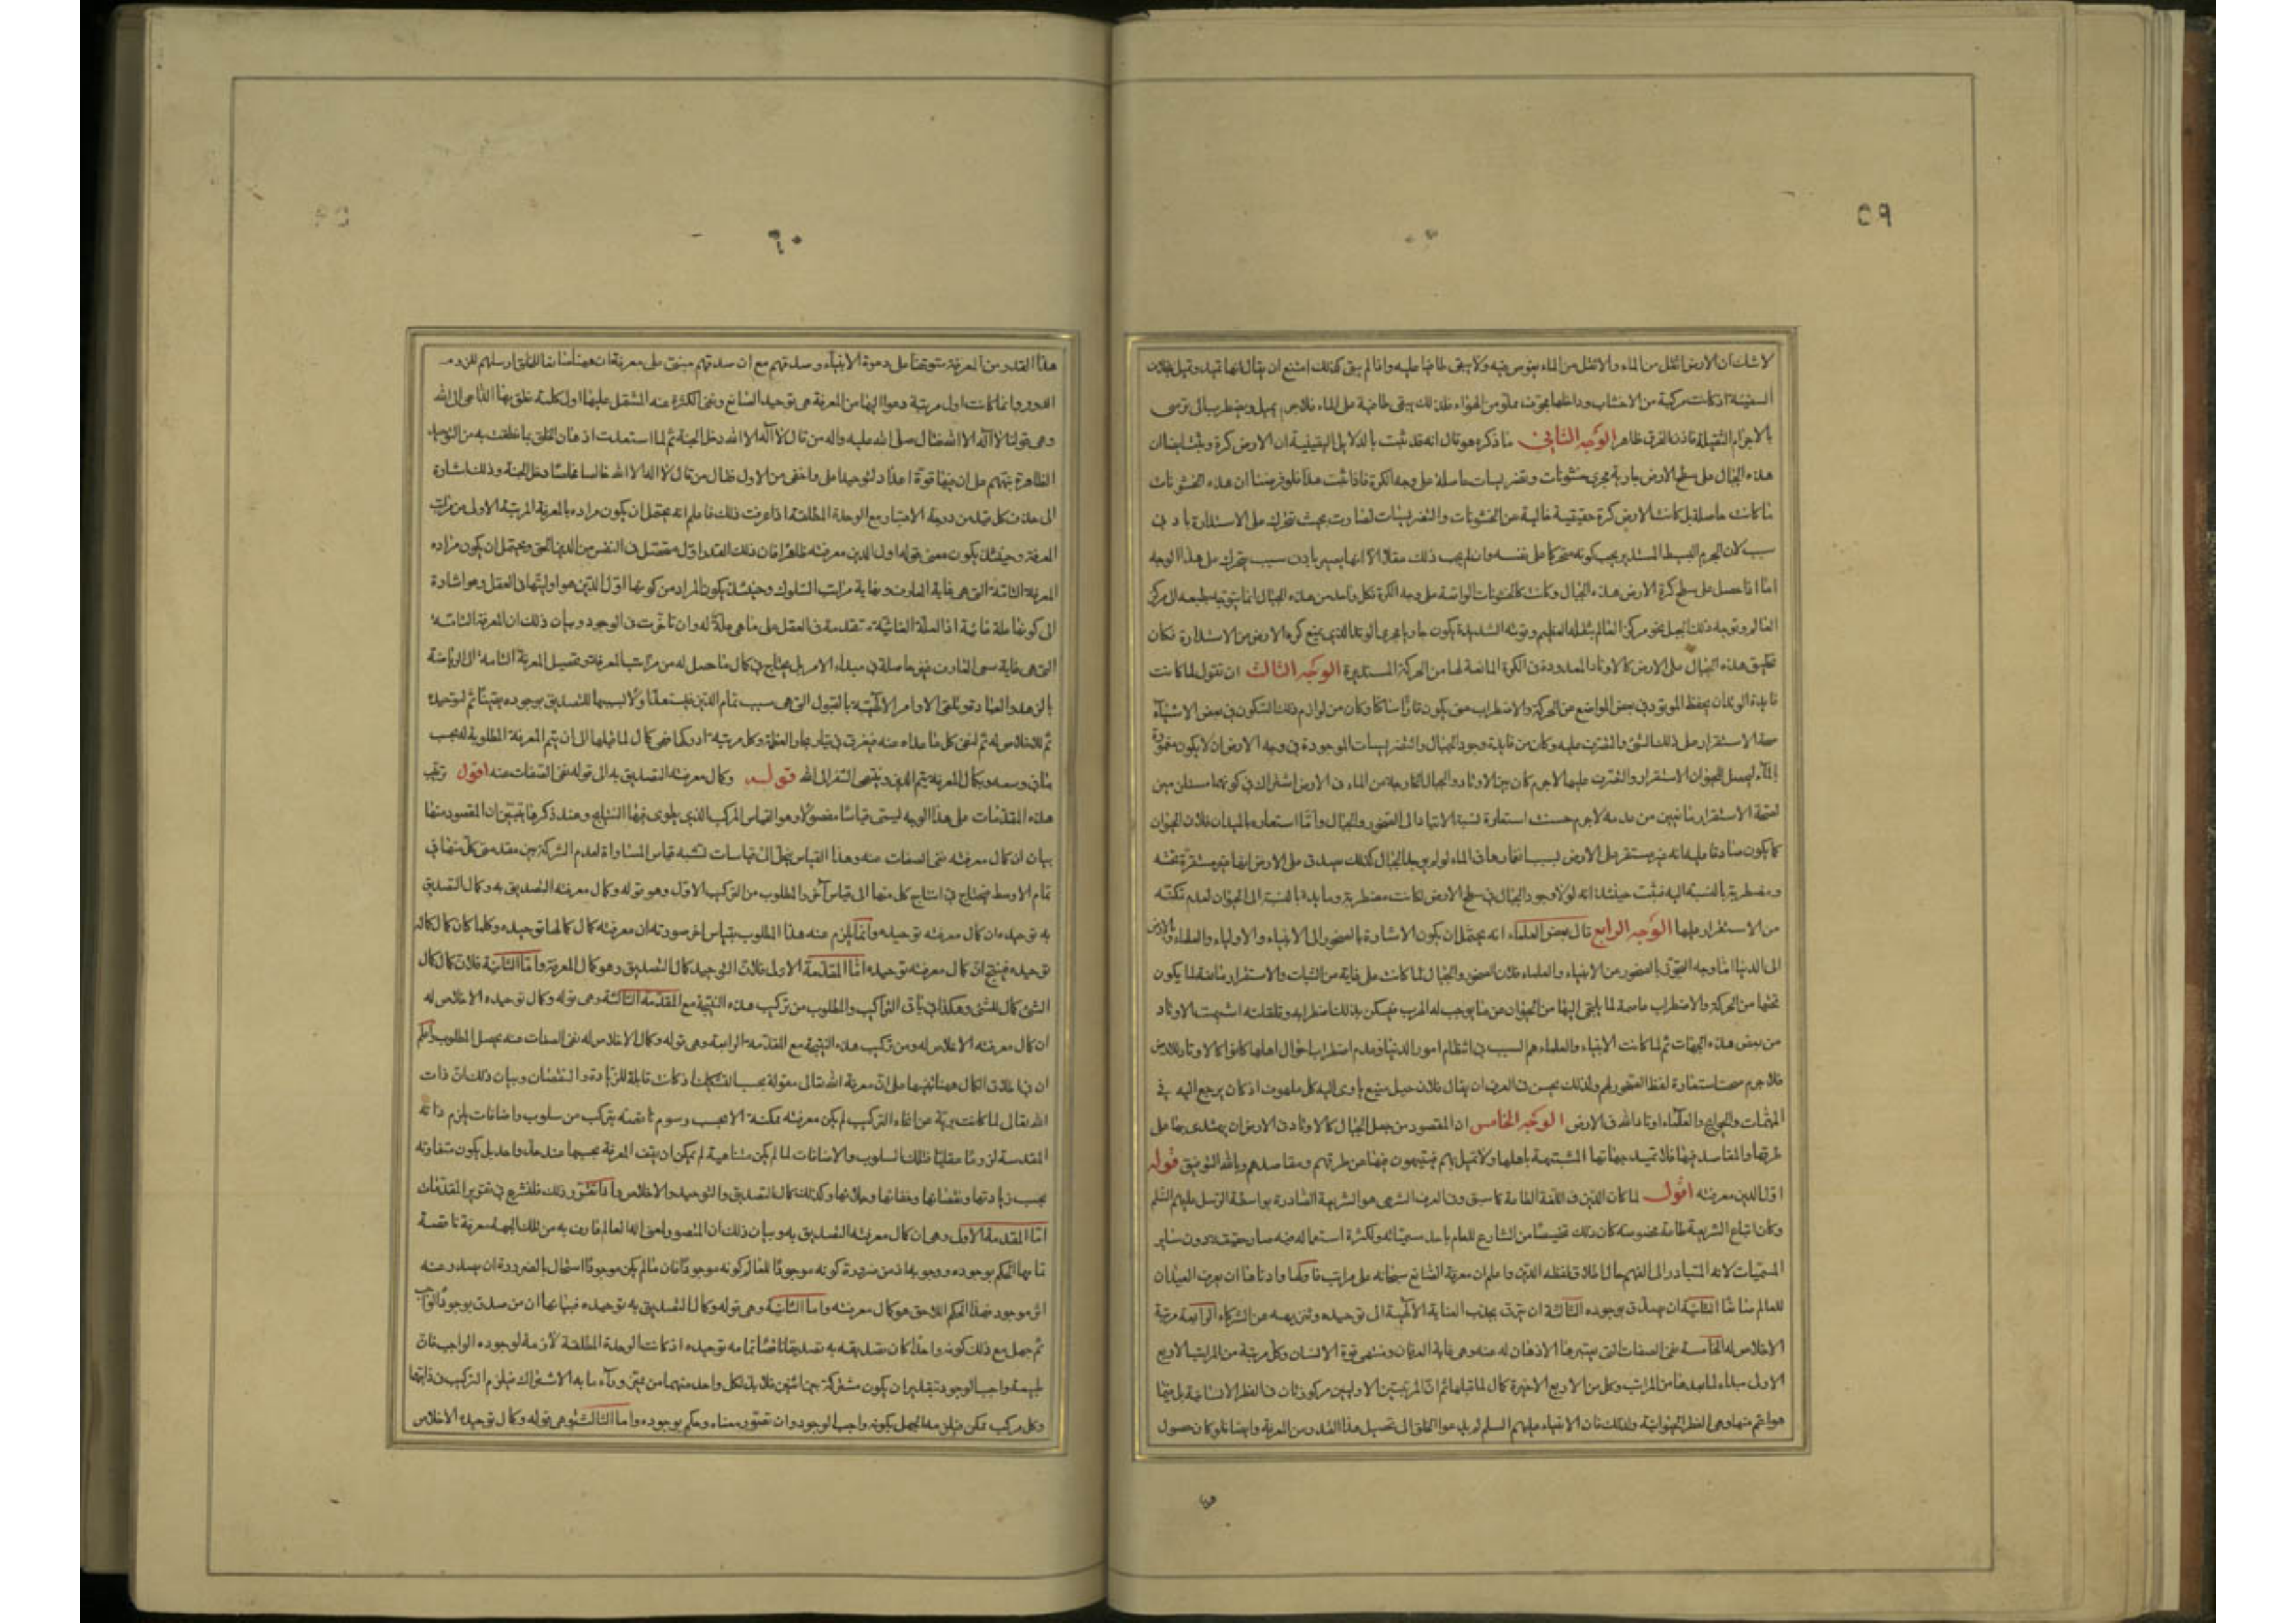 ٥٩
لا شك ان الارض اثقل من الماء والاثقل من الماء يغوص فيه ولا يبقى طافيا عليه واذا لم يبق كذلك امتنع ان يقال انها تميد وتميل بخلاف
السفينة اذ كانت مركبة من الاخشاب وداخلها مجوف مملو من الهواء فلذلك يبقى طافية على الماء فلا جرم يميل ويضطرب الى ان ترسى
بالاجرام الثقيلة فاذن الفرق ظاهر الوجه الثانى ما ذكره هو قال انه قد ثبت بالدلايل اليقينية ان الارض كرة وثبت ايضا ان
هذه الجبال على سطح الارض جارية مجرى خشونات وتضريسات حاصلة على وجه الكرة فاذا ثبت هذا فلو فرضنا ان هذه الخشونات
ما كانت حاصلة بل كانت الارض كرة حقيقية خالية عن الخشونات والتضريسات لصارت بحيث تتحرك على الاستدارة بادنى
سبب لان الجرم البسيط المستدير يجب كونه متحركا على نفسه وان لم يجب ذلك عقلا الا انها يصير بادنى سبب يتحرك على هذا الوجه
اما اذا حصل على سطح كرة الارض هذه الجبال وكانت كالخشونات الواقعة على وجه الكرة فكل واحد من هذه الجبال انما يتوجه بطبعه الى مركز
العالم وتوجه ذلك الجبل نحو مركز العالم بثقله العظيم وقوته الشديدة يكون جاريا مجرى الوتد الذى يمنع كرة الارض من الاستدارة فكان
تخليق هذه الجبال على الارض كالاوتاد المعدودة فى الكرة المانعة لها من الحركة المستديرة الوجه الثالث ان نقول لما كانت
فايدة الوتد ان يحفظ الموتود فى بعض المواضع من الحركة والاضطراب حتى يكون قارا ساكنا وكان من لوازم ذلك السكون فى بعض الاشياء
صحة الاستقرار على ذلك الشئ والتصرف عليه وكان من فايدة وجود الجبال والتضريسات الموجودة فى وجه الارض ان لا يكون مغمورة
بالماء ليحصل للحيوان الاستقرار والتصرف عليها لاجرم كان بين الاوتاد والجبال الخارجة من الماء فى الارض اشتراك فى كونهما مستلزمين
لصحة الاستقرار مانعين من عدمه لاجرم حسنت استعارة نسبة الايتاد الى الصخور والجبال واما استعاره بالميدان فلان الحيوان
كما يكون صادقا عليه انه غير مستقر على الارض بسبب انغمارها فى الماء لو لم يوجد الجبال كذلك يصدق على الارض انها غير مستقرة تحته
ومضطربة بالنسبة اليه فثبت حينئذ انه لولا وجود الجبال فى سطح الارض لكانت مضطربة ومايدة بالنسبة الى الحيوان لعدم تمكنه
من الاستقرار عليها الوجه الرابع قال بعض العلماء انه يحتمل ان يكون الاشارة بالصخور الى الانبياء والاولياء والعلماء وبالارض
الى الدنيا اما وجه التجوز بالصخور عن الانبياء والعلماء فلان الصخور والجبال لما كانت على غاية من الثبات والاستقرار مانعة لما يكون
تحتها من الحركة والاضطراب عاصمة لما يلتجئ اليها من الحيوان عن ما يوجب له الهرب فيسكن بذلك اضطرابه وتقلقله اشبهت الاوتاد
من بعض هذه الجهات ثم لما كانت الانبياء والعلماء هم السبب فى انتظام امور الدنيا وعدم اضطراب احوال اهلها كانوا كالاوتاد للارض
فلا جرم صحت استعارة لفظ الصخور لهم ولذلك يحسن فى العرف ان يقال فلان جبل منيع يأوى اليه كل ملهوف اذ كان يرجع اليه فى
المهمات والحوايج والعلماء اوتاد الله فى الارض الوجه الخامس ان المقصود من جعل الجبال كالاوتاد فى الارض ان يهتدى بها على
طرقها والمقاصد فيها فلا تميد جهاتها المشتبهة باهلها ولا تميل بهم فيتيهون فيها عن طرقهم ومقاصدهم وبالله التوفيق قوله
اول الدين معرفته اقول لما كان الدين فى اللغة الطاعة كما سبق وفى العرف الشرعى هو الشريعة الصادرة بواسطة الرسل عليهم السلم
وكان اتباع الشريعة طاعة مخصوصة كان ذلك تخصيصا من الشارع للعام باحد مسمياته ولكثرة استعماله فيه صار حقيقة دون ساير
المسميات لانه المتبادر الى الفهم حال اطلاق لفظ الدين واعلم ان معرفة الصانع سبحانه على مراتب فاولها وادناها ان يعرف العبد ان
للعالم صانعا الثانية ان يصدق بوجوده الثالثة ان يترقى بجذب العناية الالهية الى توحيده وتنزيهه عن الشركاء الرابعة مرتبة
الاخلاص له الخامسة نفى الصفات التى يعتبرها الاذهان له عنه وهى غاية العرفان ومنتهى قوة الانسان وكل مرتبة من المراتب الاربع
الاول مبداء لما بعدها من المراتب وكل من الاربع الاخيرة كمال لما قبلها ثم ان المرتبتين الاوليين مركوزتان فى الفطر الانسانية بل فيما
هو اعم منها وهى الفطر الحيوانية ولذلك فان الانبياء عليهم السلم لم يدعوا الخلق الى تحصيل هذا القدر من المعرفة وايضا فلو كان حصول
٦٠
هذا القدر من المعرفة متوقفا على دعوة الانبياء وصدقهم مع ان صدقهم مبنى على معرفة ان ههنا صانعا للخلق ارسلهم للزم
الدور وانما كانت اول مرتبة دعوا اليها من المعرفة هى توحيد الصانع ونفى الكثرة عنه المشتمل عليها اول كلمة نطق بها الداعى الى الله
وهى قولنا لا اله الا الله فقال صلى الله عليه واله من قال لا اله الا الله دخل الجنة ثم لما استعدت اذهان الخلق بما نطقت به من التوحيد
الظاهر نبههم على ان فيها قوة اعداد لتوحيد اعلى واخفى من الاول فقال من قال لا اله الا الله خالصا مخلصا دخل الجنة وذلك اشارة
الى حذف كل قيد من درجة الاعتبار مع الوحدة المطلقة اذا عرفت ذلك فاعلم انه يحتمل ان يكون مراده بالمعرفة المرتبة الاولى من مراتب
المعرفة وحينئذ يكون معنى قوله اول الدين معرفته ظاهرا فان ذلك القدر اول متحصل فى النفس من الدين الحق ويحتمل ان يكون مراده
المعرفة التامة التى هى غاية العارف ونهاية مراتب السلوك وحينئذ يكون المراد من كونها اول الدين هو اوليتها فى العقل وهو اشارة
الى كونها علة غائية اذ العلة الغائية متقدمة فى العقل على ما هى علة له وان تاخرت فى الوجود وبيان ذلك ان المعرفة التامة
التى هى غاية سعى العارف غير حاصلة فى مبداء الامر بل يحتاج فى كمال ما حصل له من مراتب المعرفة وتحصيل المعرفة التامة الى الرياضة
بالزهد والعبادة وتلقى الاوامر الالهية بالقبول التى هى سبب تمام الدين فيستعد اولا بسببها للتصديق بوجوده يقينا ثم لتوحيده
ثم للاخلاص له ثم لنفى كل ما عداه عنه فيغرق فى تيار بحار العظمة وكل مرتبة ادركها فهى كمال لما قبلها الى ان يتم المعرفة المطلوبة له بحسب
ما فى وسعه وبكمال المعرفة يتم الدين وينتهى السفر الى الله قوله وكمال معرفته التصديق به الى قوله نفى الصفات عنه اقول ترتيب
هذه المقدمات على هذا الوجه ليسمى قياسا مفصولا وهو القياس المركب الذى يطوى فيها النتايج وعند ذكرها يتبين ان المقصود منها
بيان ان كمال معرفته نفى الصفات عنه وهذا القياس ينحل الى قياسات تشبه قياس المساواة لعدم الشركة بين مقدمتى كل منها فى
تمام الاوسط فيحتاج فى انتاج كل منها الى قياس آخر والمطلوب من التركيب الاول وهو قوله وكمال معرفته التصديق به وكمال التصديق
به توحيده ان كمال معرفته توحيده وانما يلزم عنه هذا المطلوب بقياس اخر صورته ان معرفته كمال كمالها توحيده وكلما كان كمال كماله
توحيده فينتج ان كمال معرفته توحيده اما المقدمة الاولى فلان التوحيد كمال التصديق وهو كمال المعرفة واما الثانية فلان كمال كمال
الشئ كمال للشئ وهكذا فى باقى التراكيب والمطلوب من تركيب هذه النتيجة مع المقدمة الثالثة وهى قوله وكمال توحيده الاخلاص له
ان كمال معرفته الاخلاص له ومن تركيب هذه النتيجة مع المقدمة الرابعة وهى قوله وكمال الاخلاص له نفى الصفات عنه يحصل المطلوب واعلم
ان فى اطلاق الكمال ههنا تنبيها على ان معرفة الله تعالى مقولة بحسب التشكيك اذ كانت قابلة للزيادة والنقصان وبيان ذلك ان ذات
الله تعالى لما كانت برية عن انحاء التركيب لم يكن معرفته ممكنة الا بحسب رسوم ناقصة يتركب من سلوب واضافات يلزم ذاته
المقدسة لزوما عقليا فتلك السلوب والاضافات لما لم يكن متناهية لم يمكن ان يقف المعرفة بحسبها عند حد واحد بل يكون متفاوتة
بحسب زيادتها ونقصانها وخفائها وجلائها وكذلك كمال التصديق والتوحيد والاخلاص واذا تقرر ذلك فلنشرع فى تقرير المقدمات
اما المقدمة الاولى وهى ان كمال معرفته التصديق به وبيان ذلك ان المتصور لمعنى اله العالم عارف به من تلك الجهة معرفة ناقصة
تمامها الحكم بوجوده ووجوبه اذ من ضرورة كونه موجدا للعالم كونه موجودا فان ما لم يكن موجودا استحال بالضرورة ان يصدر عنه
اثر موجود فهذا الحكم اللاحق هو كمال معرفته واما الثانية وهى قوله وكمال التصديق به توحيده فبيانها ان من صدق بوجود الواجب
ثم جهل مع ذلك كونه واحدا كان تصديقه به تصديقا ناقصا تمامه توحيده اذ كانت الوحدة المطلقة لازمة لوجوده الواجب فان
طبيعة واجب الوجود بتقدير ان يكون مشتركة بين اثنين فلابد لكل واحد منهما من مميز وراء ما به الاشتراك فيلزم التركيب فى ذاتيهما
وكل مركب ممكن فيلزمه الجهل بكونه واجب الوجود وان تصور معناه وحكم بوجوده واما الثالثة وهى قوله وكمال توحيده الاخلاص